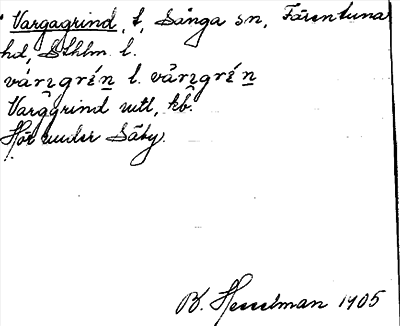 Vargagrind, t, Sånga sn, Färentuna
hd, Sthlm. l.
várₐgrén l. vàrₐgrén
Varggrind utl, kb.
Hör under Säby.
B. Hesselman 1905